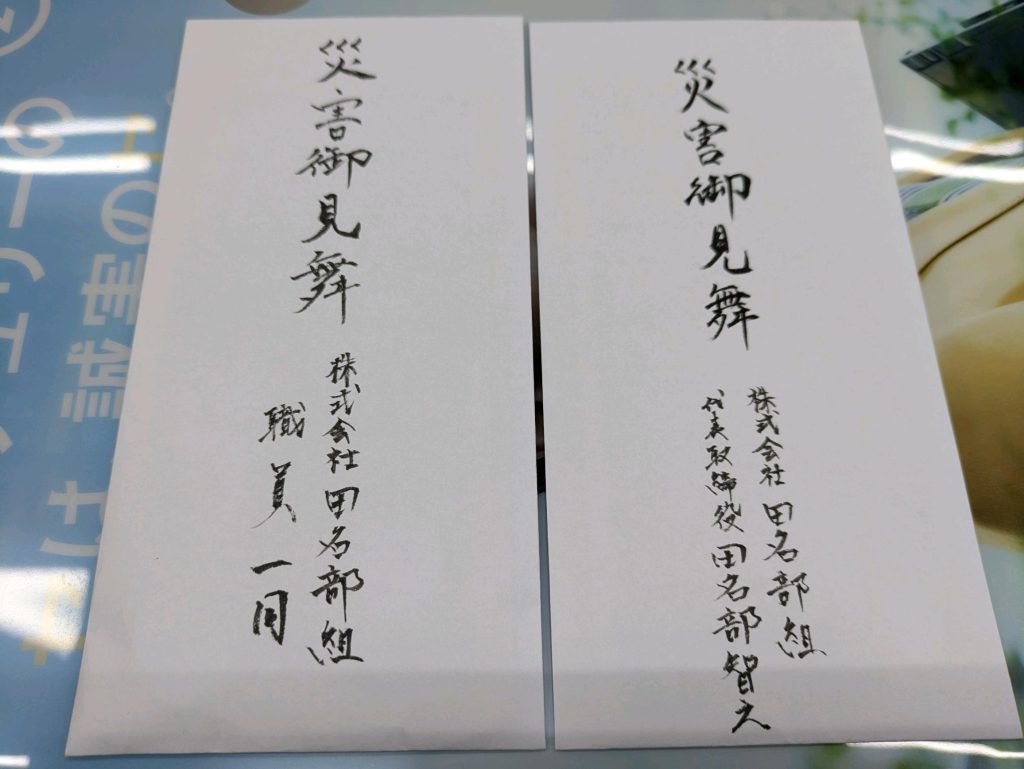 災害御見舞
株式会社 田名部組
職員一同
災害御見舞
株式会社 田名部組
代表取締役 田名部智之
誠実の